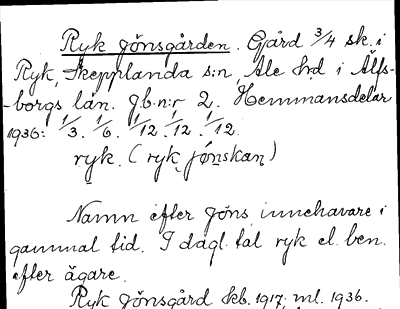 Ryk Jönsgården. Gård 3/4 sk. i
Ryk, Skepplanda s:n, Ale hrd i Älfs-
-borgs län. Jb.n:r 2. Hemmansdelar
1936: 1/3. 1/6. 1/12. 1/12. 1/12.
ryk. (ryk jönskan)
Namn efter Jöns, innehavare i
gammal tid. I dagl. tal ryk el. ben.
efter ägare.
Ryk Jönsgård kb. 1917; ml. 1936.